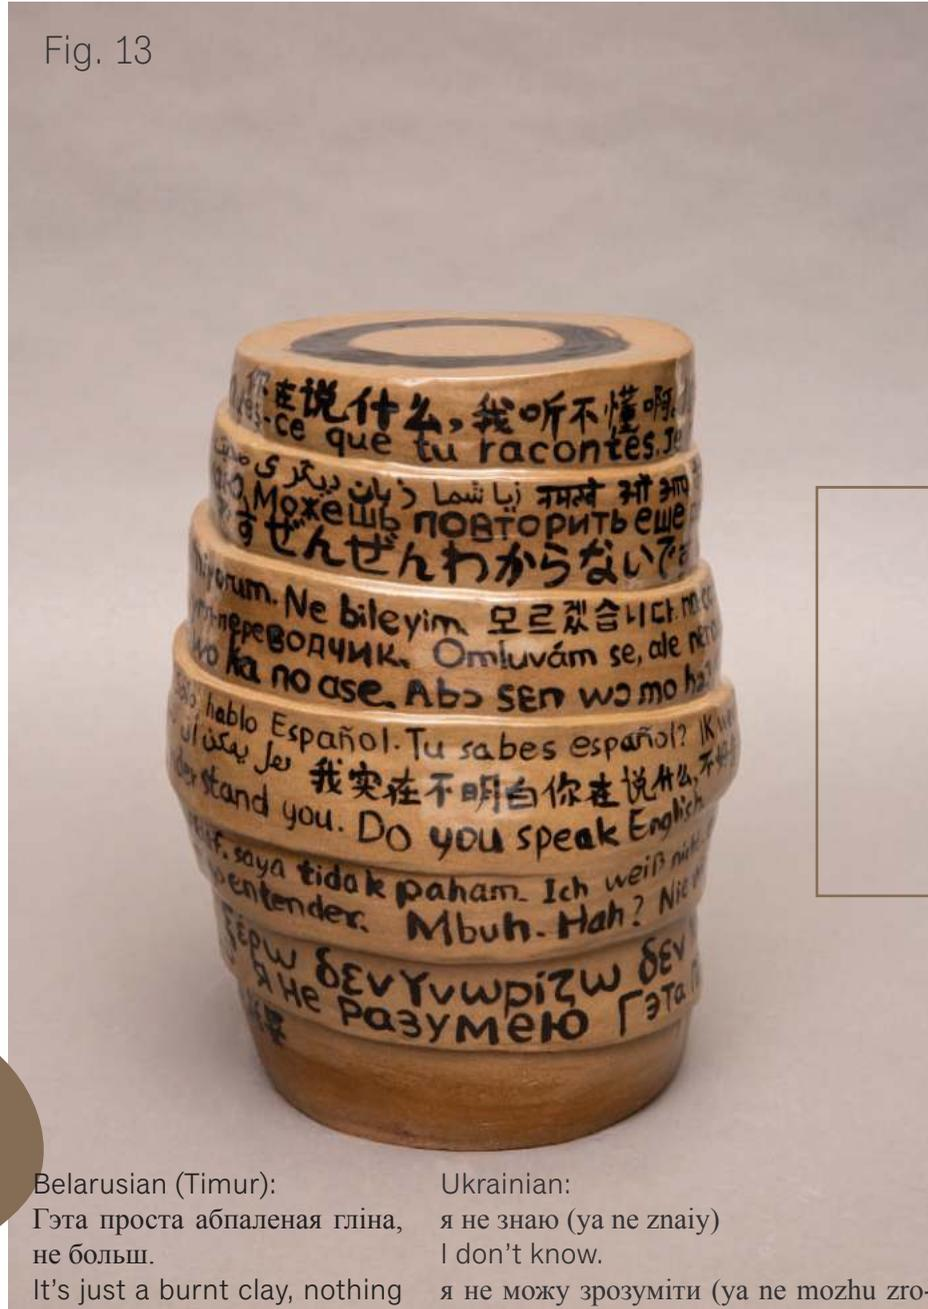 Fig. 13
在说什么，我听不懂啊
-ce que tu racontes. Je
زبان دیگری
آیا شما नमस्ते
Можешь повторить еще
す ぜんぜんわからないです
Ne bileyim 모르겠습니다.
переводчик. Omluvám se, ale
ka no ase. Abɔ sɛn wɔ mo ho?
hablo Español. Tu sabes español? IK
هل يمكن أن 我实在不明白你在说什么,不
derstand you. Do you speak English
saya tidak paham. Ich weiß nicht.
entender. Mbuh. Hah? Nie
ξέρω δεν γνωρίζω δεν
Я не разумею Гэта
Belarusian (Timur):
Гэта проста абпаленая гліна,
не больш.
It's just a burnt clay, nothing
Ukrainian:
я не знаю (ya ne znaiy)
I don't know.
я не можу зрозуміти (ya ne mozhu zro-